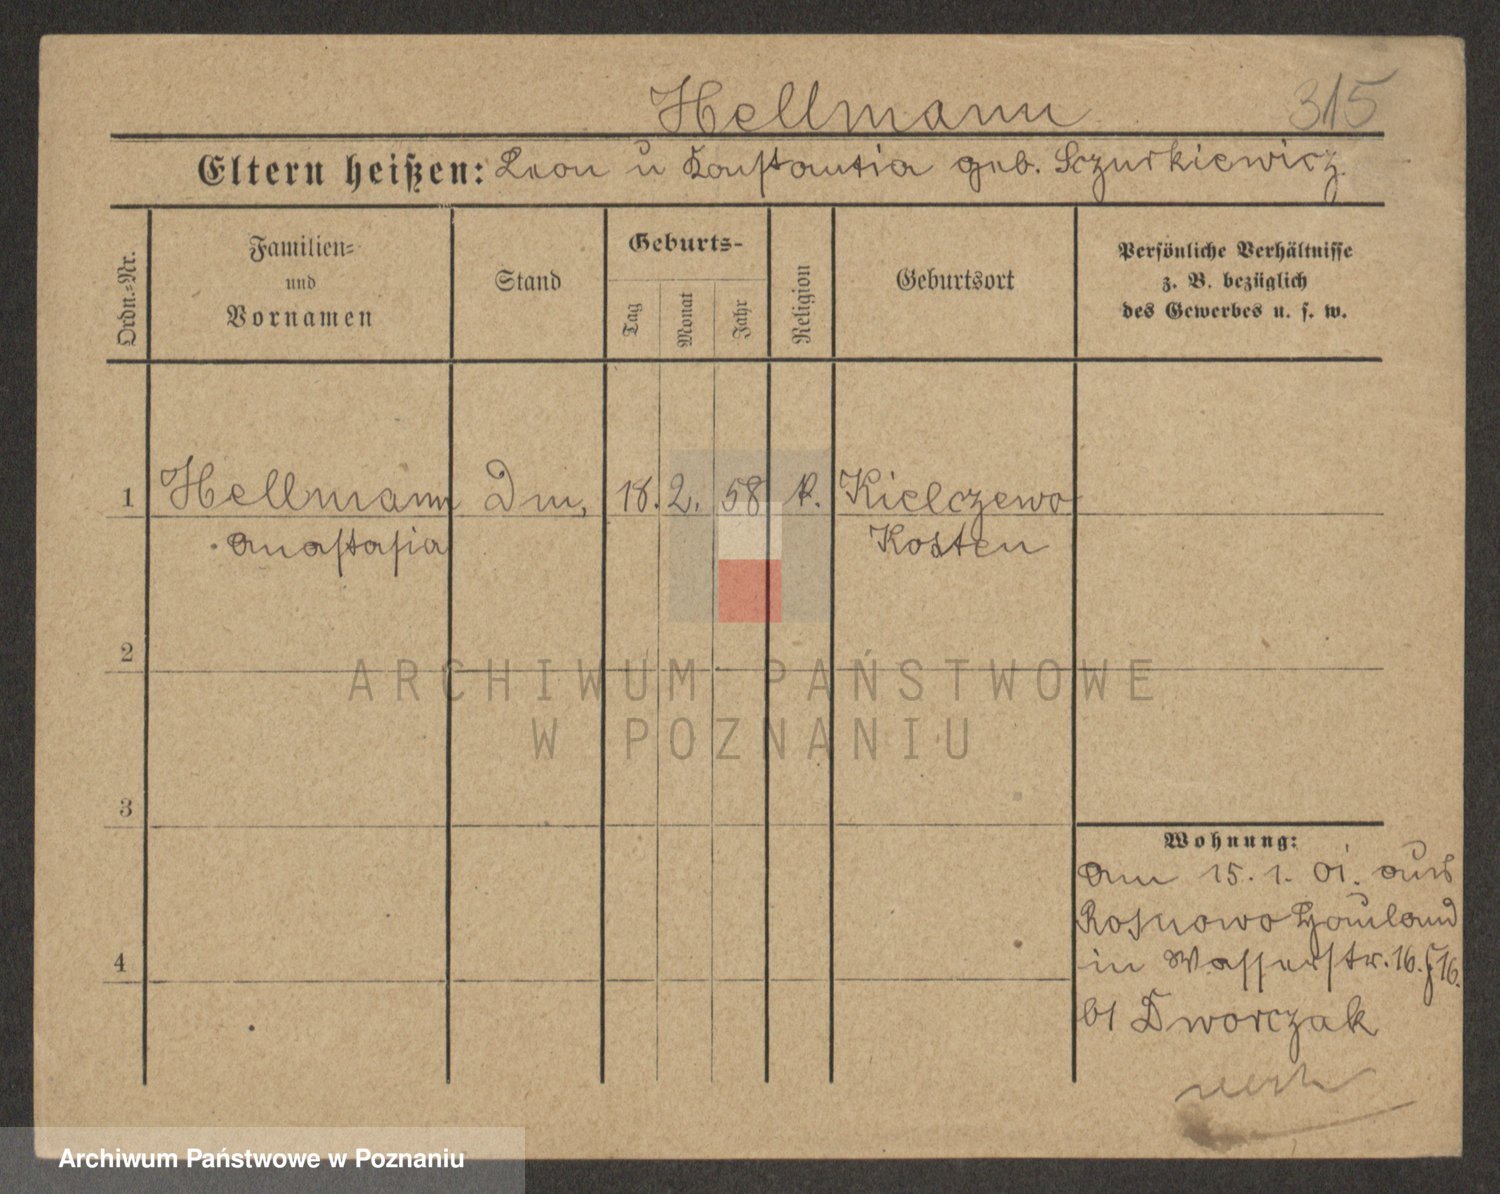 Hellmann 315
Eltern heißen: Leon u Konstantia geb. Sczurkiewicz.
Ordn.-Nr.
Familien-
und
Vornamen
Stand
Geburts-
Tag
Monat
Jahr
Religion
Geburtsort
Persönliche Verhältnisse
z. B. bezüglich
des Gewerbes u. s. w.
1 Hellmann Dm, 18. 2. 58 k. Kielczewo
Anastasia Kosten
2
3
4
Wohnung:
Am 15. 1. 01. aus
Rosnowo Hauland
in Wasserstr. 16.
Dworczak
ARCHIWUM PAŃSTWOWE
W POZNANIU
Archiwum Państwowe w Poznaniu